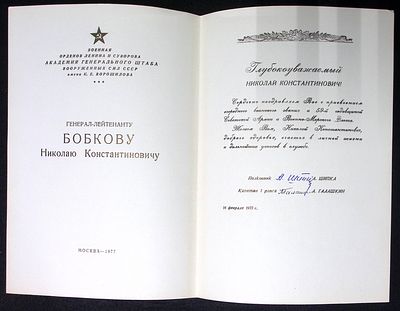 ВОЕННАЯ
ОРДЕНОВ ЛЕНИНА И СУВОРОВА
АКАДЕМИЯ ГЕНЕРАЛЬНОГО ШТАБА
ВООРУЖЕННЫХ СИЛ СССР
имени К. Е. ВОРОШИЛОВА
ГЕНЕРАЛ-ЛЕЙТЕНАНТУ
БОБКОВУ
Николаю Константиновичу
МОСКВА—1977
Глубокоуважаемый
НИКОЛАЙ КОНСТАНТИНОВИЧ!
Сердечно поздравляем Вас с присвоением
очередного воинского звания и 59-й годовщиной
Советской Армии и Военно-Морского Флота.
Желаем Вам, Николай Константинович,
доброго здоровья, счастья в личной жизни
и дальнейших успехов в службе.
Полковник А. ШИПКА
Капитан 1 ранга А. ГАЛАШКИН
февраля 1977 г.